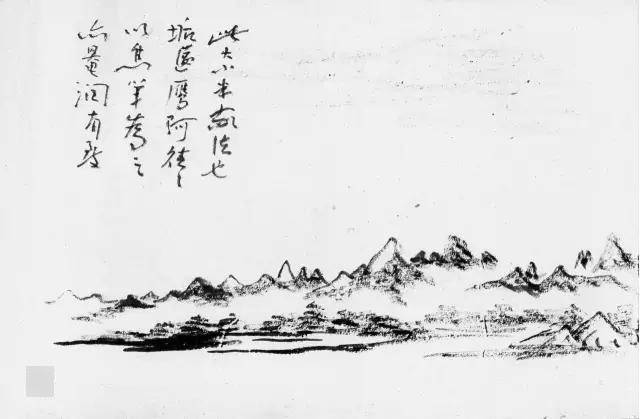 此大小米家法也
垢區鷹阿往〻
以焦筆為之
亦潤有致